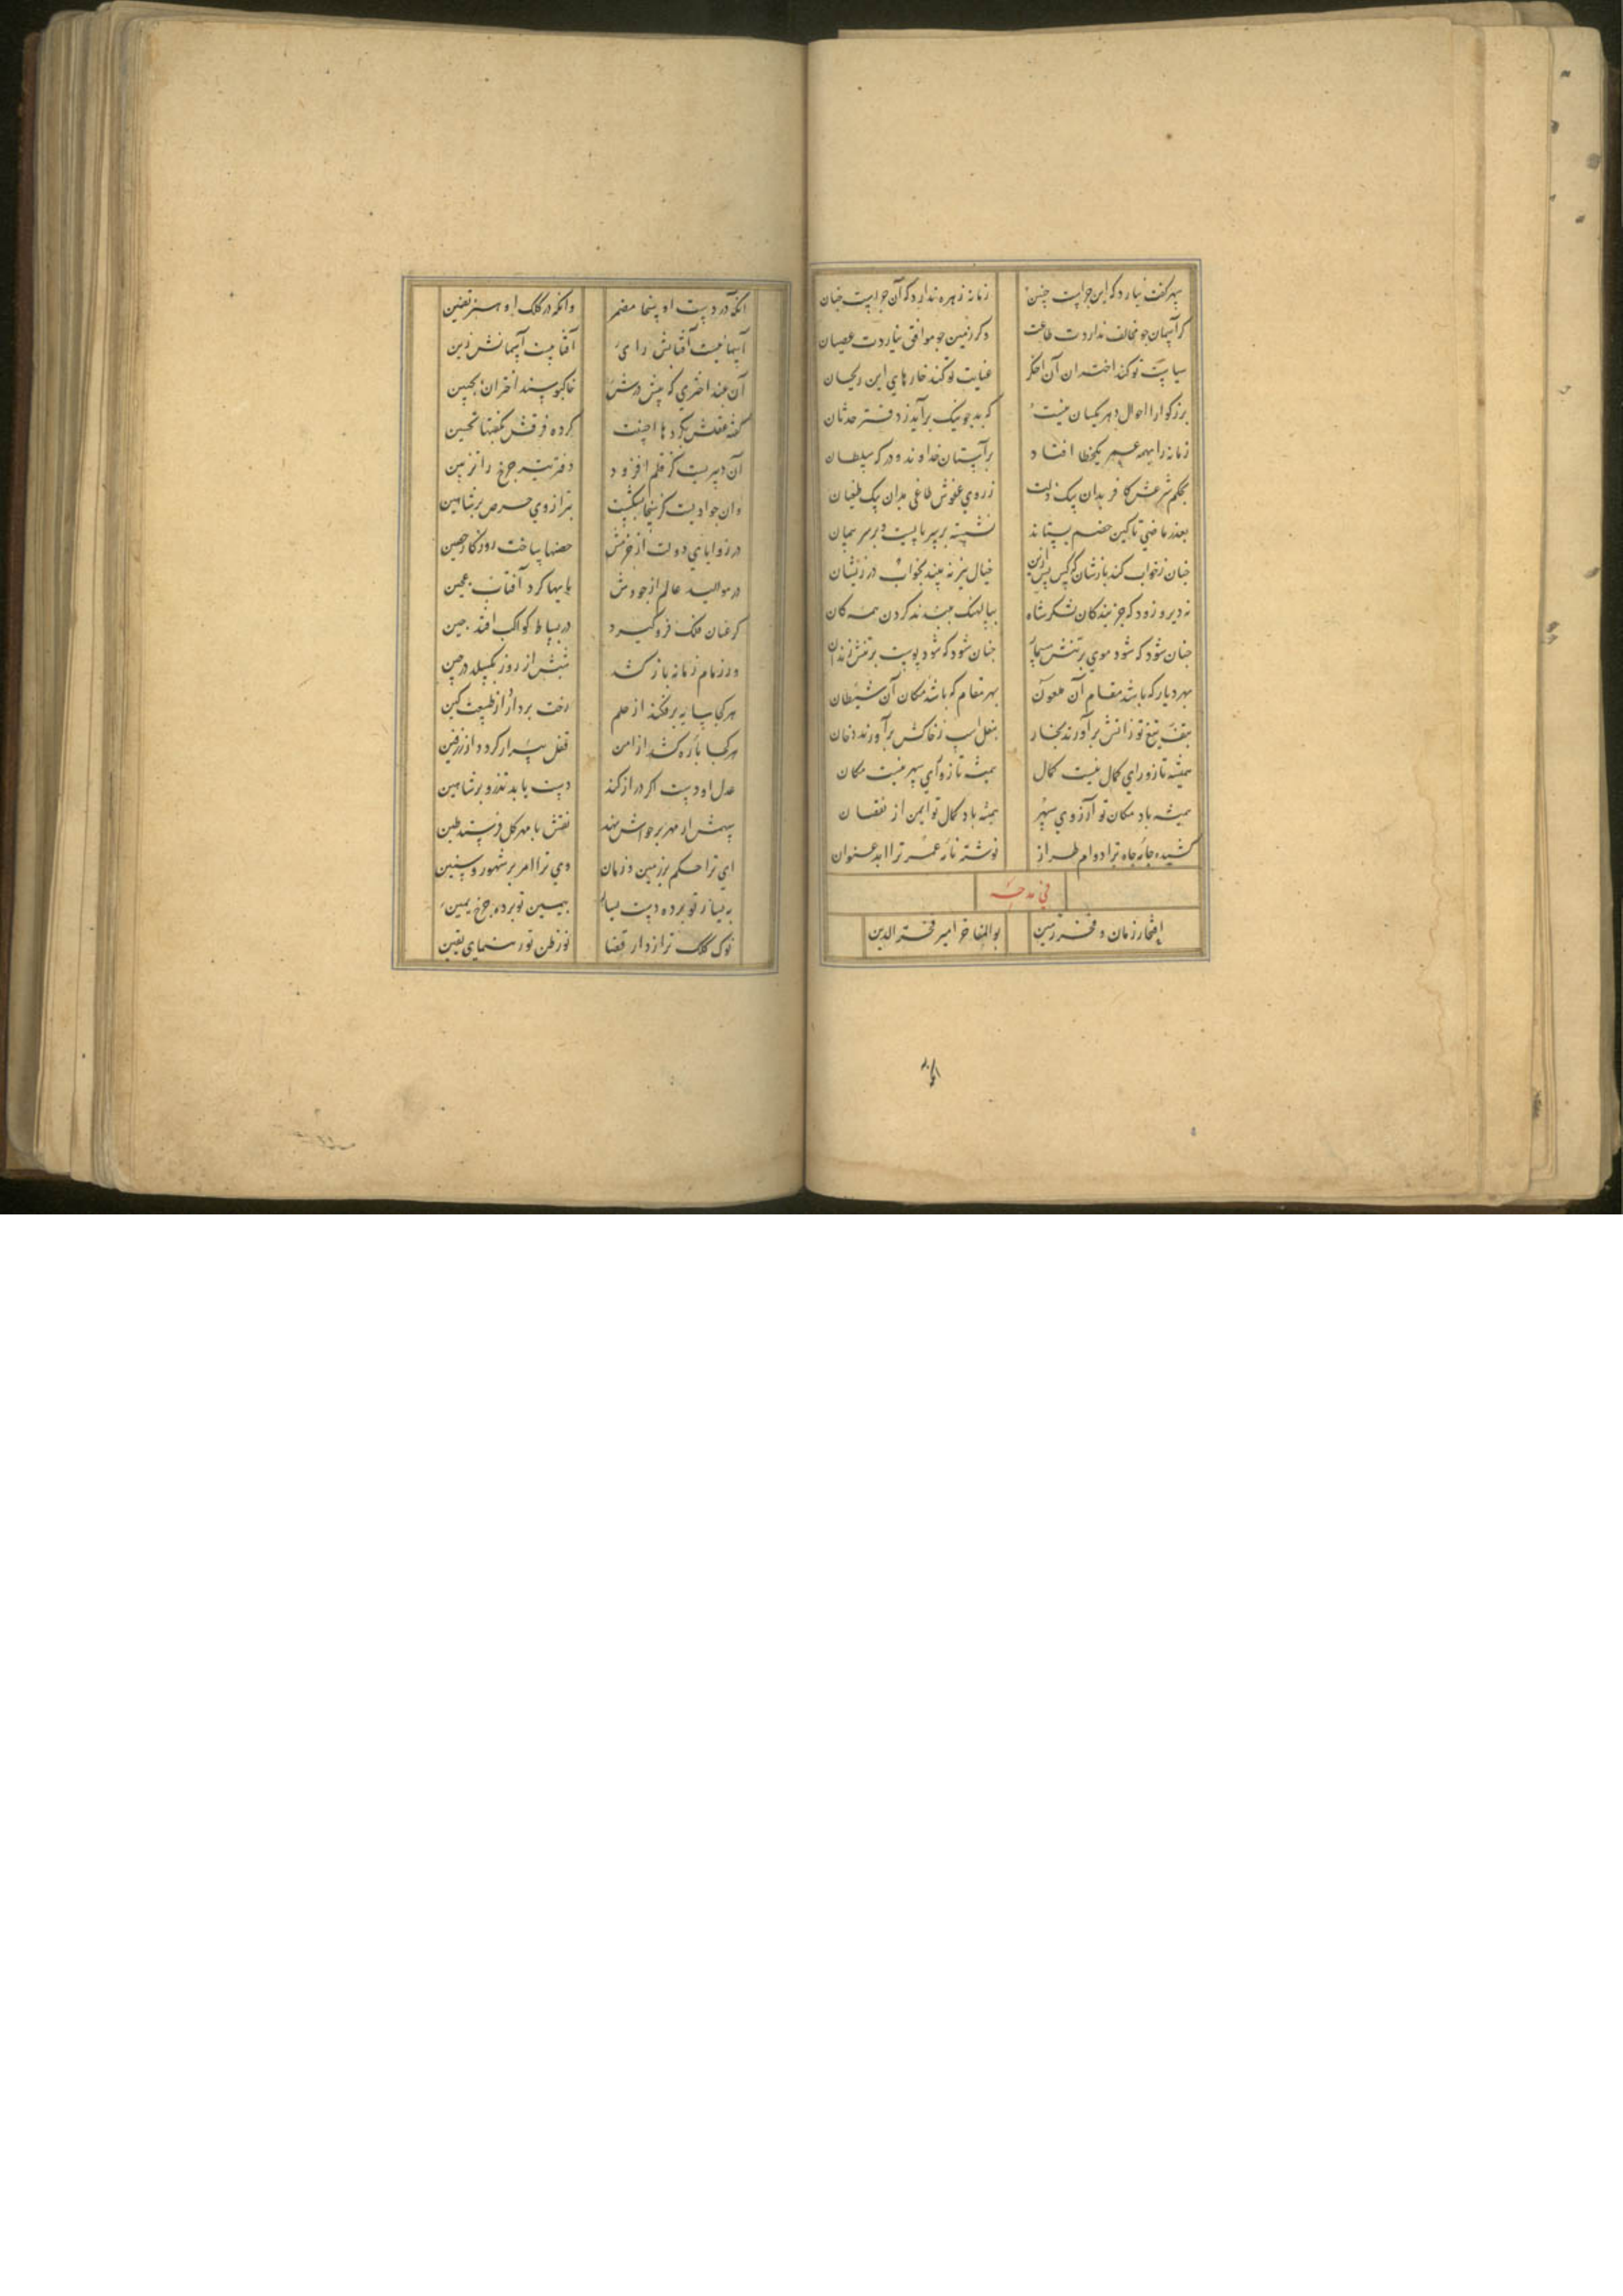 سپهر گفت نیارد که این چراست چنین زمانه زهره ندارد که آن چراست چنان
گر آسمان جو مخالف نداردت طاعت وگر زمین جو موافق نیاردت عصیان
سیاست تو کند اختران آن اخگر عنایت تو کند خارهای این ریحان
بزرگوارا احوال دهر یکسان نیست که بد جو نیک برآید ز دفتر حدثان
زمانه را همه عمر یک خطا افتاد بر آستان خداوند و درگه سلطان
بحکم شرعش کافر بدان یک زلت ز روی عفوش طاغی بدان یک طغیان
بعذر ماضی تا کین خصم بستاند نشسته بر سر پایست و بر سر پیمان
چنان ز خواب کند بازشان که کس پس ازین خیال نیز نه بیند بخواب در زیشان
نه دیر و زود که جز بندکان لشکر شاه ببالهنک ببندند کردن همه کان
چنان شود که شود موی بر تنش مسمار چنان شود که شود پوست بر تنش زندان
بهر دیار که باشد مقام آن ملعون بهر مقام که باشد مکان آن شیطان
بتف تیغ تو ز آتش برآورند بخار بنعل اسب ز خاکش برآورند دخان
همیشه تا ز ورای کمال نیست کمال همیشه تا ز ورای سپهر نیست مکان
همیشه باد مکان تو آرزوی سپهر همیشه باد کمال تو ایمن از نقصان
کشیده جامه جاه ترا دوام طراز نوشته نامه عمر ترا ابد عنوان
فی مدحه
افتخار زمان و فخر زمین بوالمفاخر امیر فخرالدین
آنکه
آنکه در دست او سخا مضمر وانکه در کلک او هنر تضمین
آسمانیست آفتابش رای آفتابیست آسمانش زین
آن بلند اختری که پیش درش خاکبوسند اختران بجبین
گفته عقلش بکردها احسنت کرده فرقش بگفتها تحسین
آن دبیریست کز قلم افزود دفتر تیر چرخ را تزیین
وان جوادیست کز سخا بشکست ترازوی حرص بر شاهین
در زوایای دولت از حزمش حصنها ساخت روزگار حصین
در موالید عالم از جودش مایها کرد آفتاب عجین
گر عنان فلک فرو گیرد در بساط کواکب افتد چین
ور زمام زمانه باز کشد شبش از روز بگسلد در حین
هر کجا سایه برفکند از حلم رخت بردارد از طبیعت کین
هر کجا باره کشد از امن قفل بیزار گردد از زرفین
عدل او دست اگر دراز کند دست یابد تذرو بر شاهین
سهمش ار مهر بر حواس نهد نقش با مهر گل فرستد طین
ای ترا حکم بر زمین و زمان وی ترا امر بر شهور و سنین
به یسار تو برده دست یسار بیمین تو برده چرخ یمین
نوک کلک تو رازدار قضا نور ظن تو رهنمای یقین